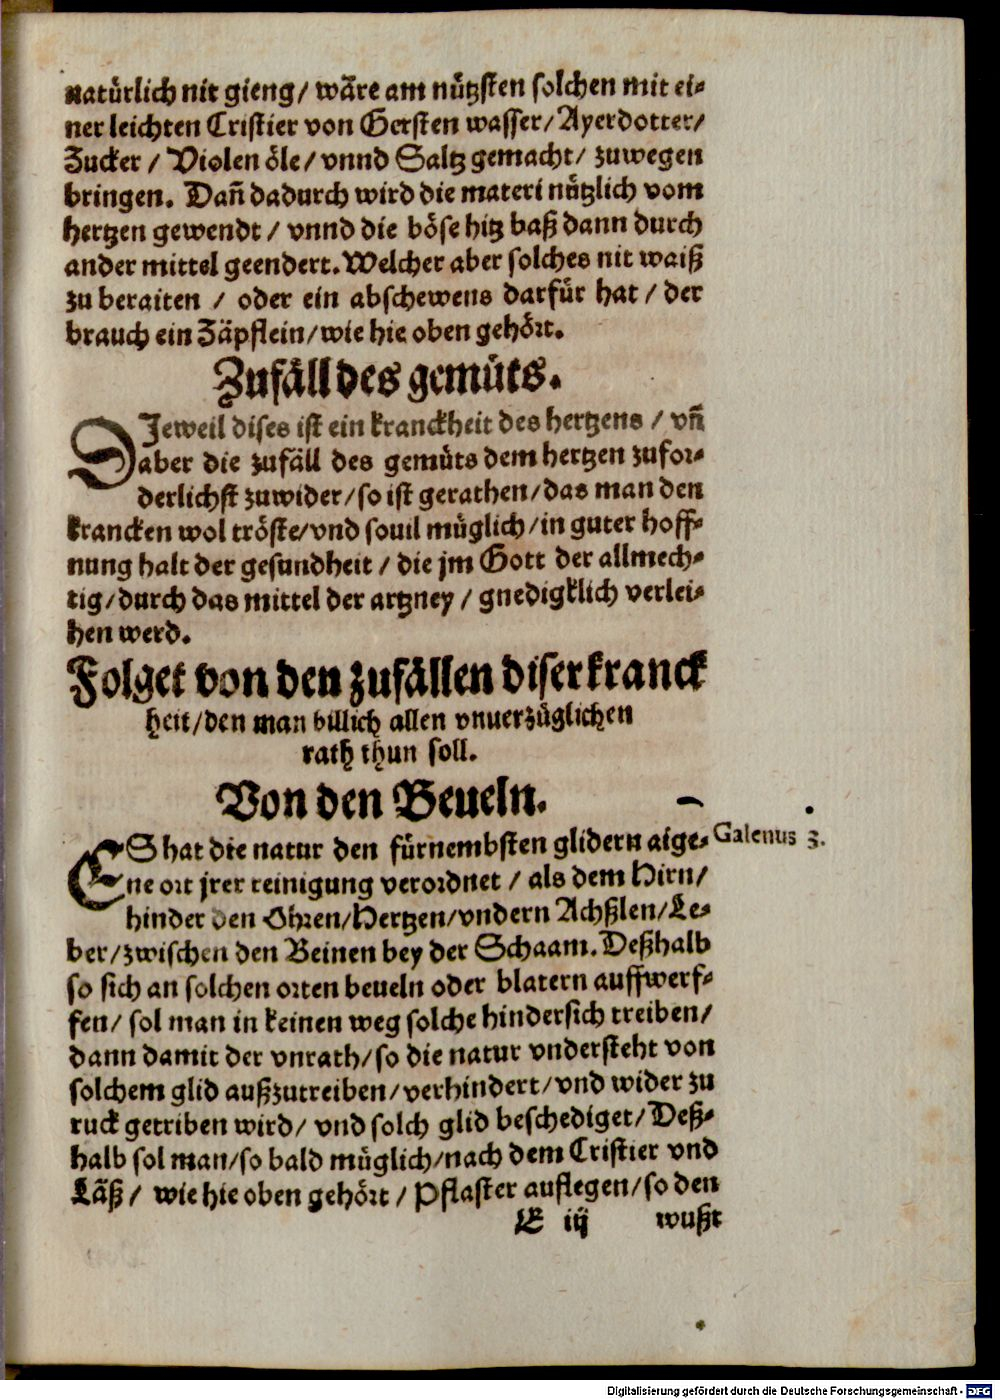 natürlich nit gieng/ wäre am nützsten solchen mit ei-
ner leichten Cristier von Gersten wasser/ Ayerdotter/
Zucker / Violen öle/ vnnd Saltz gemacht/ zuwegen
bringen. Dañ dadurch wird die materi nützlich vom
hertzen gewendt / vnnd die böse hitz baß dann durch
ander mittel geendert. Welcher aber solches nit waiß
zu beraiten / oder ein abschewens darfür hat / der
brauch ein Zäpflein/ wie hie oben gehört.
Zufäll des gemüts.
DJeweil dises ist ein kranckheit des hertzens / vñ
aber die zufäll des gemüts dem hertzen zufor-
derlichst zuwider/ so ist gerathen/ das man den
krancken wol tröste/ vnd souil müglich/ in guter hoff-
nung halt der gesundheit / die jm Gott der allmech-
tig/ durch das mittel der artzney / gnedigklich verlei-
hen werd.
Folget von den zufällen diser kranck
heit/ den man billich allen vnuerzüglichen
rath thun soll.
Von den Beueln.
ES hat die natur den fürnembsten glidern aige-
ne ort jrer reinigung verordnet / als dem Hirn/
hinder den Ohren/ Hertzen/ vndern Achßlen/ Le-
ber/ zwischen den Beinen bey der Schaam. Deßhalb
so sich an solchen orten beueln oder blatern auffwerf-
fen/ sol man in keinen weg solche hindersich treiben/
dann damit der vnrath/ so die natur vndersteht von
solchem glid außzutreiben/ verhindert/ vnd wider zu
ruck getriben wird/ vnd solch glid beschediget/ Deß-
halb sol man/ so bald müglich/ nach dem Cristier vnd
Läß / wie hie oben gehört / Pflaster auflegen/ so den
Galenus 3.
E iij wußt
Digitalisierung gefördert durch die Deutsche Forschungsgemeinschaft - DFG